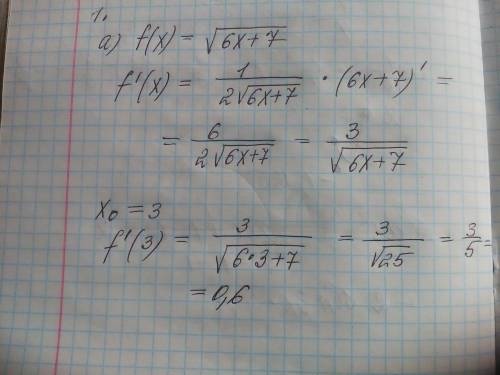 1.
а) f(x) = √(6x+7)
f'(x) = 1/(2√(6x+7)) · (6x+7)' =
= 6/(2√(6x+7)) = 3/√(6x+7)
x₀ = 3
f'(3) = 3/√(6·3+7) = 3/√25 = 3/5 =
= 0,6